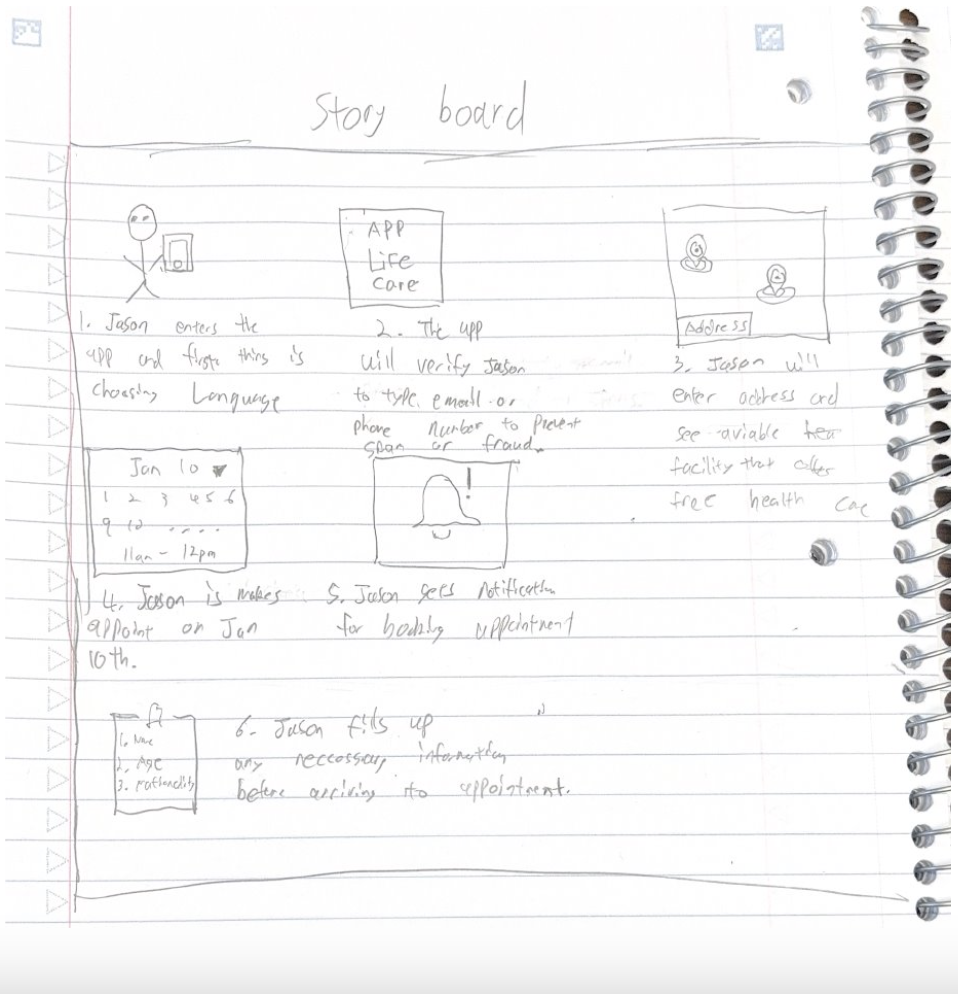 Story board
APP
Life
Care
Address
1. Jason enters the
app and firsts thing is
choosing Language
2. The app
will verify Jason
to type email or
phone number to prevent
span or fraud.
3. Jason will
enter address and
see aviable
facility that offer
free health care
Jan 10
1 2 3 4 5 6
9 10 .....
11am - 12pm
!
4. Jason is makes
appoint on Jan
10th.
5. Jason sets notification
for booking appointment
1. Name
2. Age
3. nationality
6. Jason fills up
any neccossary information
before arriving to appointment.